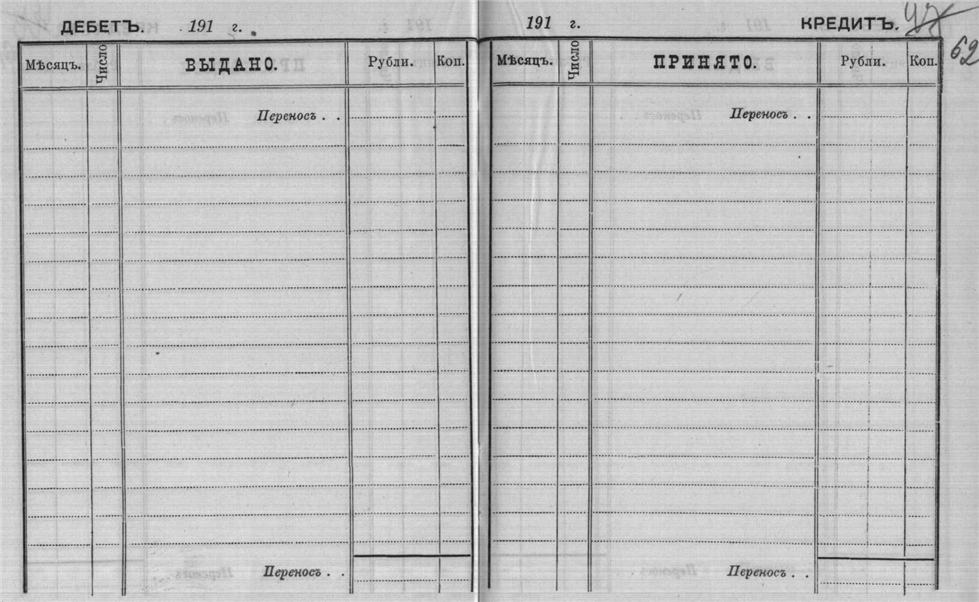 ДЕБЕТЪ. 191 г.
Мѣсяцъ. Число ВЫДАНО. Рубли. Коп.
Переносъ . .
Переносъ . .
191 г. КРЕДИТЪ.
62
Мѣсяцъ. Число ПРИНЯТО. Рубли. Коп.
Переносъ . .
Переносъ . .